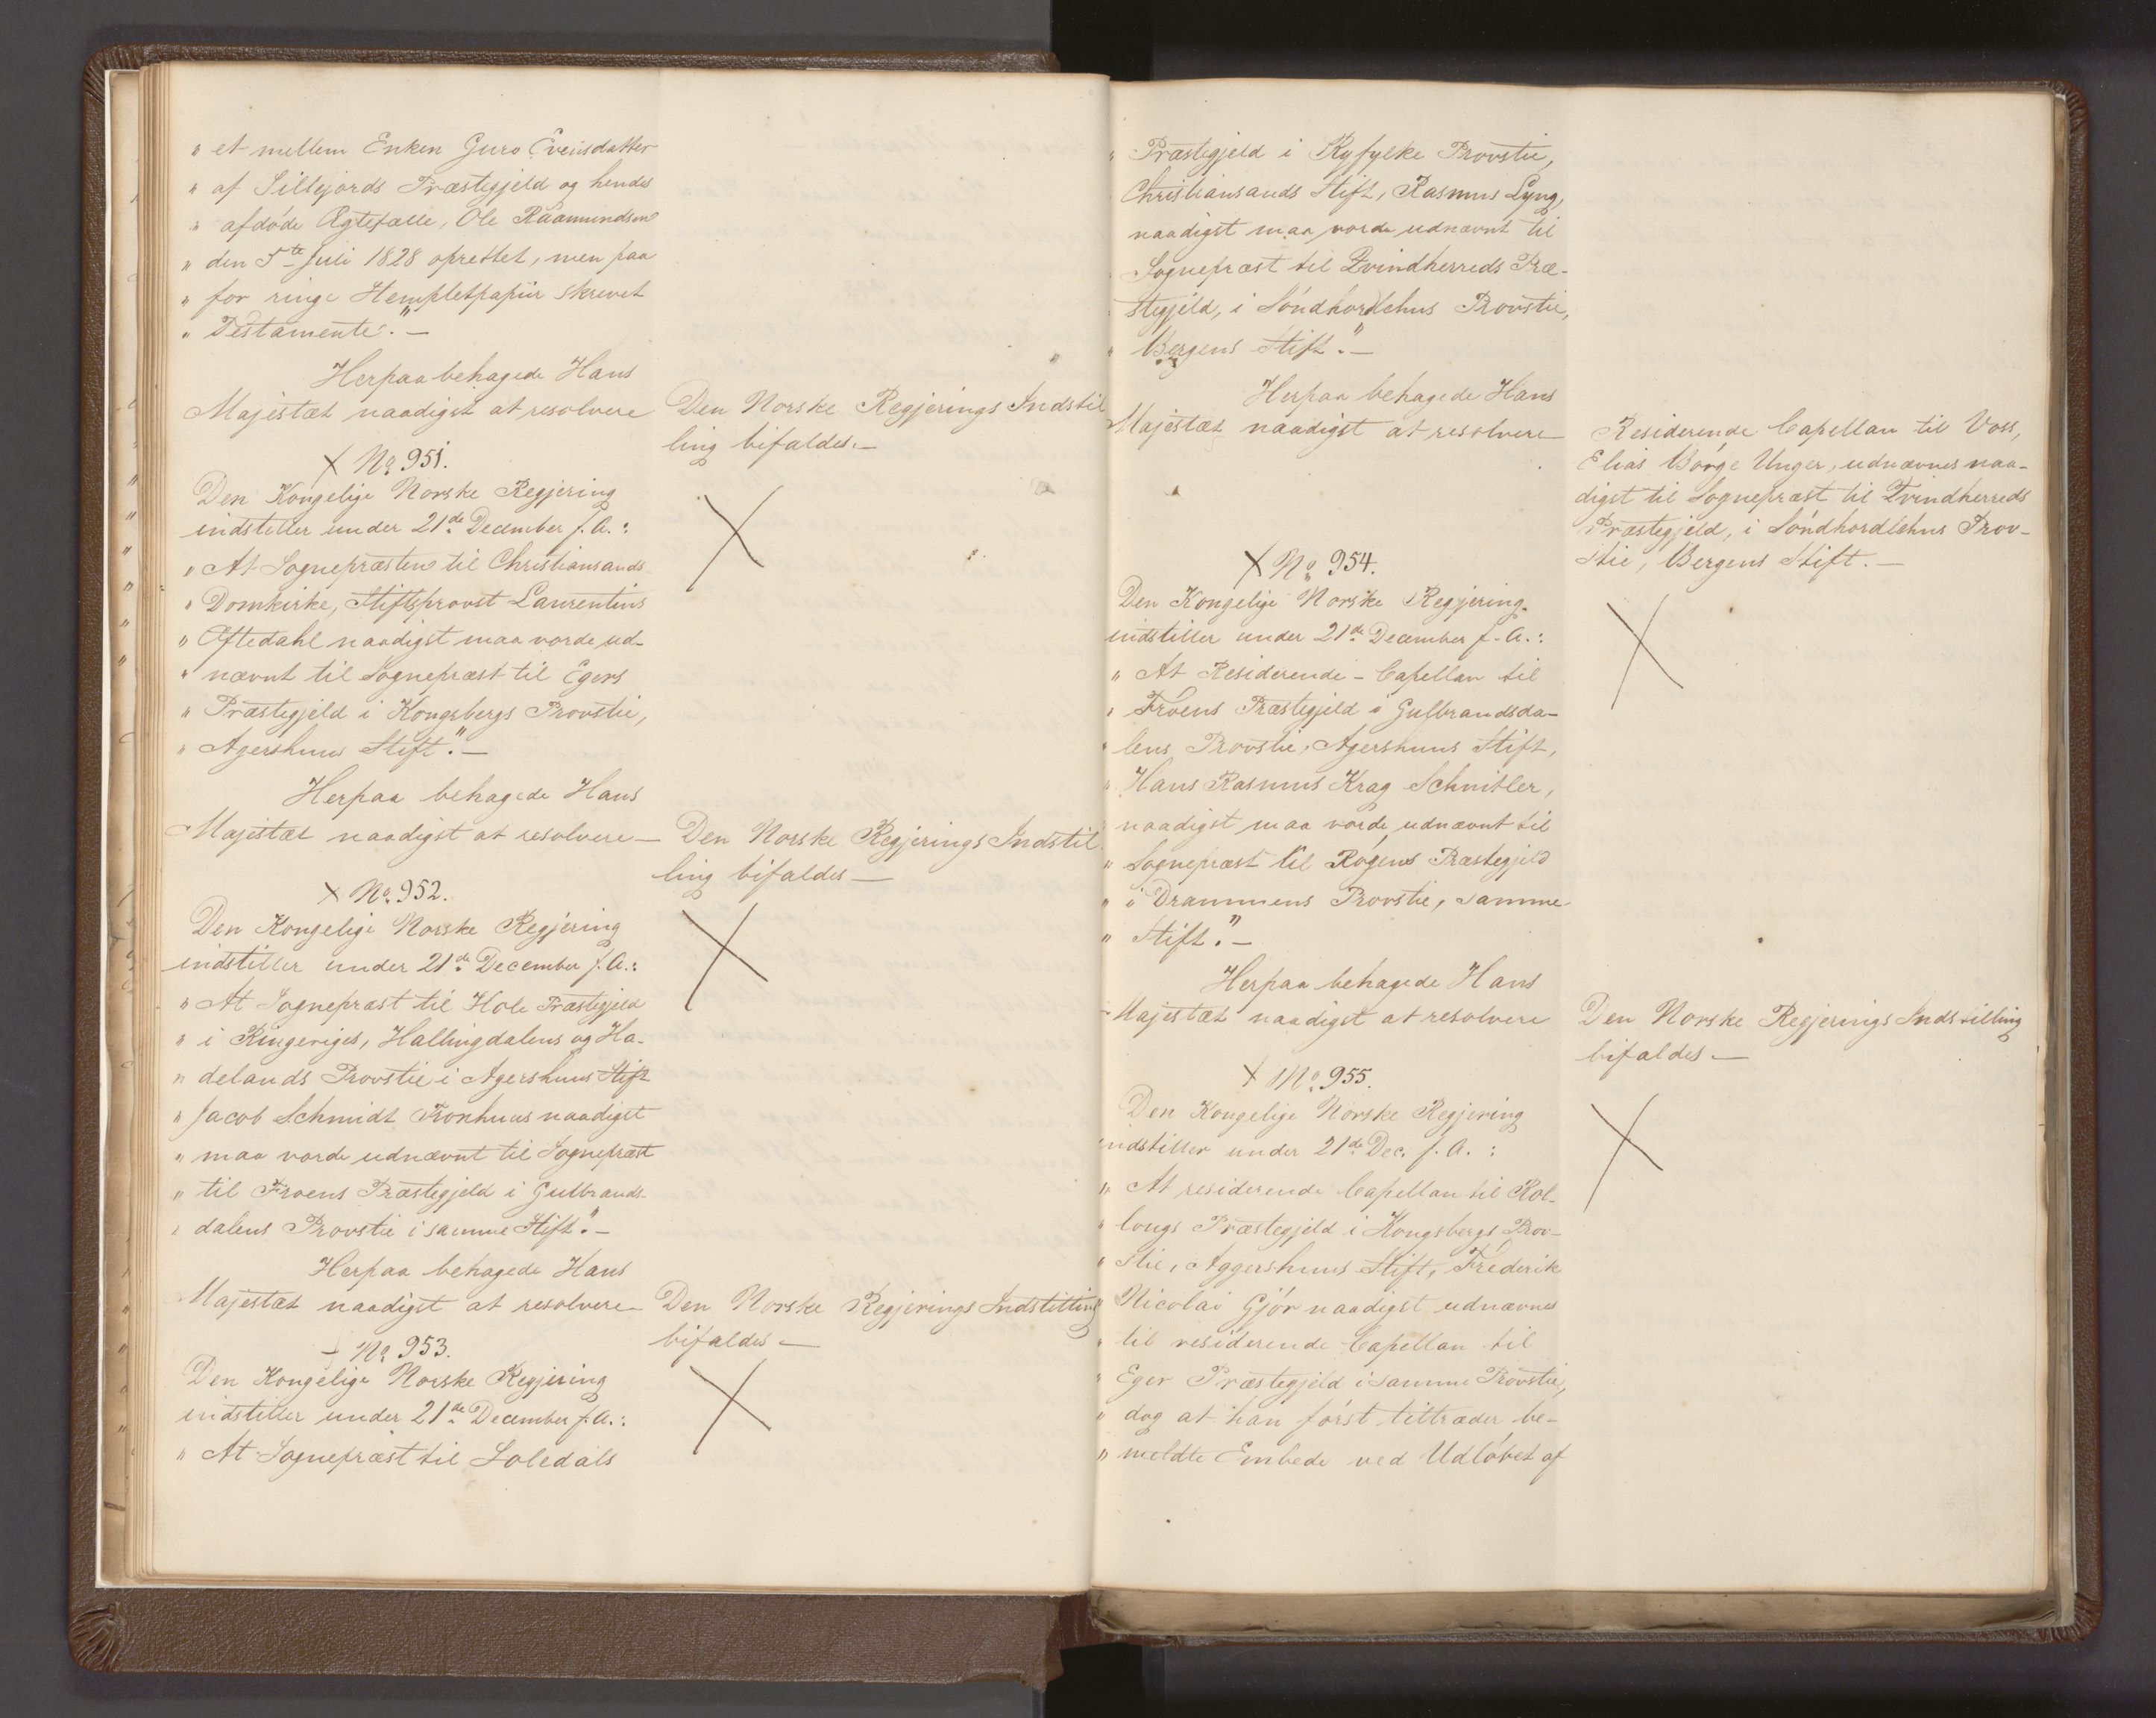 " et mellem Enken Guro Evensdatter
" af Sillejords Præstegjeld og hendes
" afdöde Ægtefælle, Ole Raamundsen
" den 5te Juli 1828 oprettet, men paa
" for ringe Stempletpapiir skrevet
" Testamente". —
Herpaa behagede Hans
Majestæt naadigst at resolvere
Den Norske Regjerings Indstil
ling bifaldes. —
No 951.
Den Kongelige Norske Regjering
indstiller under 21de December f. A.:
" At Sognepræsten til Christiansands
" Domkirke, Stiftsprovst Laurentius
" Oftedahl naadigst maa vorde ud-
" nævnt til Sognepræst til Egers
" Præstegjeld i Kongsbergs Provstie,
" Agershuus Stift". —
Herpaa behagede Hans
Majestæt naadigst at resolvere —
Den Norske Regjerings Indstil
ling bifaldes —
No 952.
Den Kongelige Norske Regjering
indstiller under 21de December f. A.:
" At Sognepræst til Hole Præstegjeld
" i Ringeriges, Hallingdalens og Ha-
" delands Provstie i Agershuus Stift
" Jacob Schmidt Tronhuus naadigst
" maa vorde udnævnt til Sognepræst
" til Froens Præstegjeld i Gulbrands-
" dalens Provstie i samme Stift". —
Herpaa behagede Hans
Majestæt naadigst at resolvere
Den Norske Regjerings Indstilling
bifaldes —
No 953.
Den Kongelige Norske Regjering
indstiller under 21de December f. A.:
" At Sognepræst til Soledals
" Præstegjeld i Ryfylke Provstie,
Christiansands Stift, Rasmus Lyng,
naadigst maa vorde udnævnt til
Sognepræst til Qvindherreds Præ-
stegjeld, i Söndhordlehns Provstie,
" Bergens Stift". —
Herpaa behagede Hans
Majestæt naadigst at resolvere
Residerende Capellan til Voss,
Elias Börge Unger, udnævnes naa-
digst til Sognepræst til Qvindherreds
Præstegjeld, i Söndhordlehns Prov-
stie, Bergens Stift. —
No 954.
Den Kongelige Norske Regjering
indstiller under 21de December f. A.:
" At Residerende - Capellan til
" Froens Præstegjeld i Gulbrandsda-
" lens Provstie, Agershuus Stift,
" Hans Rasmus Krag Schnitler,
" naadigst maa vorde udnævnt til
" Sognepræst til Rögens Præstegjeld
" i Drammens Provstie, samme
" Stift". —
Herpaa behagede Hans
Majestæt naadigst at resolvere
Den Norske Regjerings Indstilling
bifaldes —
No 955.
Den Kongelige Norske Regjering
indstiller under 21de Dec. f. A. :
" At residerende Capellan til Rol-
" lougs Præstegjeld i Kongsbergs Prov-
" stie, Aggershuus Stift, Frederik
" Nicolai Gjör naadigst udnævnes
" til residerende Capellan til
" Eger Præstegjeld i samme Provstie,
" dog at han först tiltræder be-
" meldte Embede ved Udlöbet af